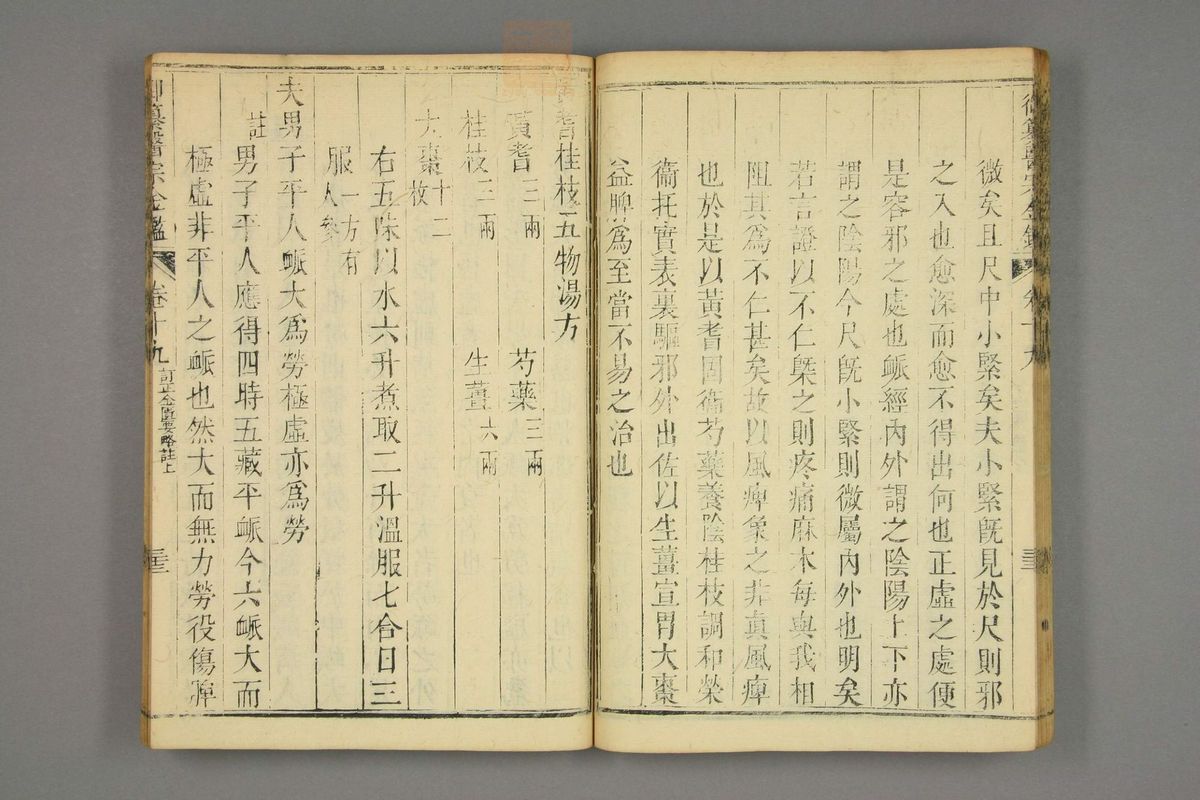 御纂醫宗金鑑 卷十九 三三
微矣且尺中小緊矣夫小緊旣見於尺則邪
之入也愈深而愈不得出何也正虛之處便
是容邪之處也脈經內外謂之陰陽上下亦
謂之陰陽今尺旣小緊則微屬內外也明矣
若言證以不仁槩之則疼痛麻木每與我相
阻其爲不仁甚矣故以風痺象之非真風痺
也於是以黃耆固衞芍藥養陰桂枝調和榮
衞托實表裏驅邪外出佐以生薑宣胃大棗
益脾爲至當不易之治也
黃耆桂枝五物湯方
黃耆三兩 芍藥三兩
桂枝三兩 生薑六兩
大棗十二枚
右五味以水六升煮取二升溫服七合日三
服一方有人參
夫男子平人脈大爲勞極虛亦爲勞
註男子平人應得四時五藏平脈今六脈大而
極虛非平人之脈也然大而無力勞役傷脾
御纂醫宗金鑑 卷十九 訂正金匱要略註上 三三